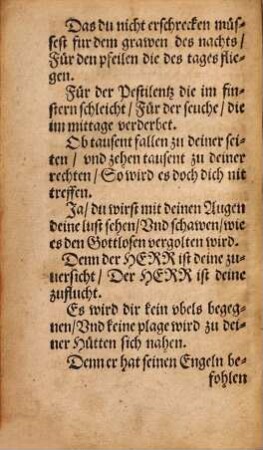 Das du nicht erschrecken müs-
sest fur dem grawen des nachts /
Für den pfeilen die des tages flie-
gen.
Für der Pestilentz die im fin-
stern schleicht / Für der seuche / die
im mittage verderbet.
Ob tausent fallen zu deiner sei-
ten / vnd zehen tausent zu deiner
rechten / So wird es doch dich nit
treffen.
Ja / du wirst mit deinen Augen
deine lust sehen / Vnd schawen / wie
es den Gottlosen vergolten wird.
Denn der HERR ist deine zu-
uersicht / Der HERR ist deine
zuflucht.
Es wird dir kein vbels begeg-
nen / Vnd keine plage wird zu dei-
ner Hütten sich nahen.
Denn er hat seinen Engeln be-
fohlen